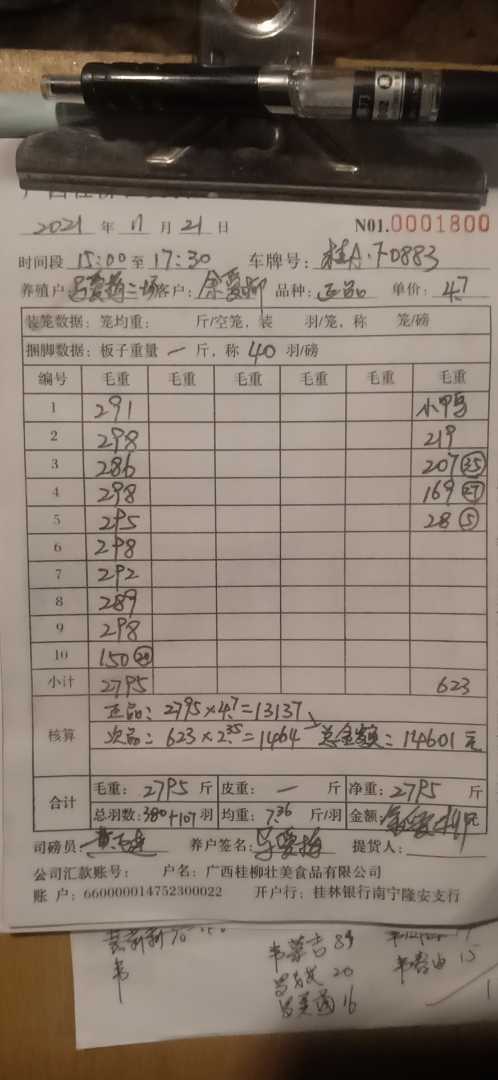 2021 年 11 月 21 日 N01.0001800
时间段 15:00 至 17:30 车牌号: 桂A·70883
养殖户 二场 客户: 余爱柳 品种: 正品 单价: 4.7
装笼数据: 笼均重: 斤/空笼, 装 羽/笼, 称 笼/磅
捆脚数据: 板子重量 一 斤, 称 40 羽/磅
编号 毛重 毛重 毛重 毛重 毛重 毛重
1 291 小鸭
2 298 219
3 286 207 35
4 298 169 27
5 295 28 5
6 298
7 292
8 289
9 298
10 150 20
小计 2795 623
核算
正品: 2795×4.7=13137
次品: 623×2.35=1464 总金额: 14601 元
合计
毛重: 2795 斤 皮重: 一 斤 净重: 2795 斤
总羽数: 380+107 羽 均重: 7.36 斤/羽 金额: 元
司磅员: 养户签名: 提货人:
公司汇款账号: 户名: 广西桂柳壮美食品有限公司
账 户: 660000014752300022 开户行: 桂林银行南宁隆安支行
韦
89
20
16
15